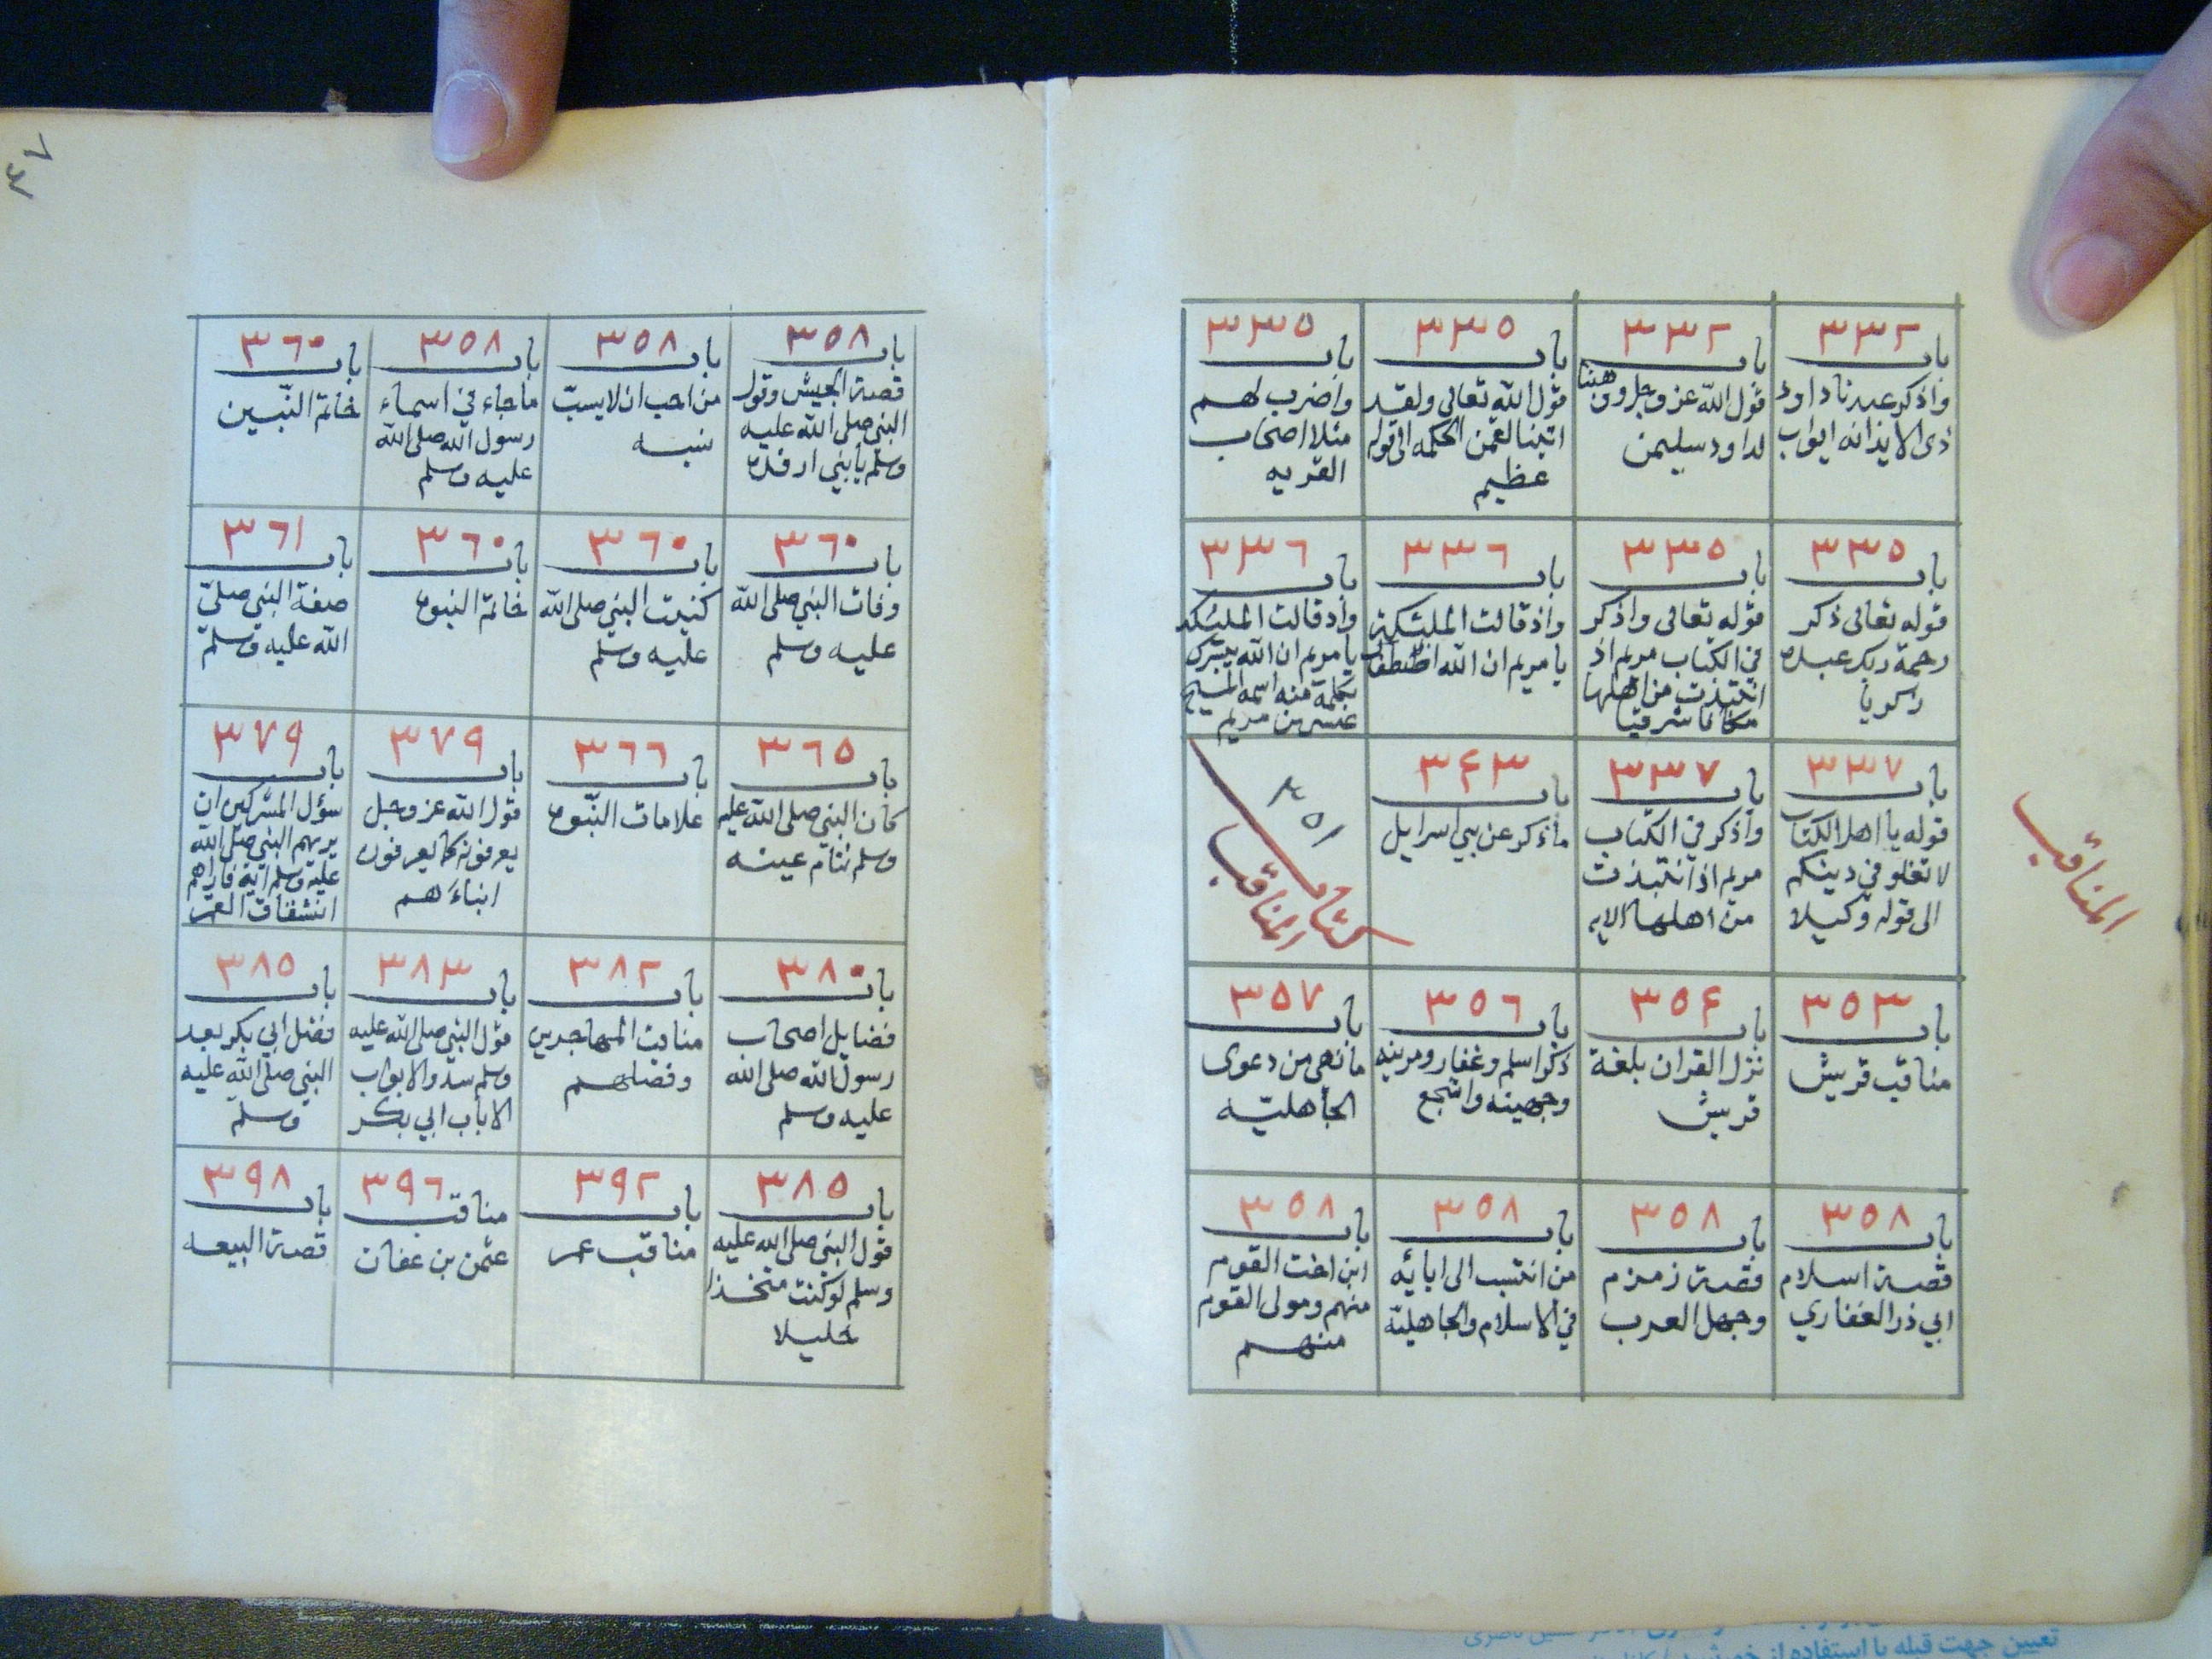 ٣٣٢
باب
واذكر عبدنا داود
ذى الايد انه اواب
٣٣٢
باب
قول الله عز وجل ووهبنا
لداود سليمن
٣٣٥
باب
قول الله تعالى ولقد
اتينا لقمن الحكمه الى قوله
عظيم
٣٣٥
باب
واضرب لهم
مثلا اصحاب
القريه
٣٣٥
باب
قوله تعالى ذكر
رحمة ربك عبده
زكريا
٣٣٥
باب
قوله تعالى واذكر
في الكتاب مريم اذ
انتبذت من اهلها
مكانا شرقيا
٣٣٦
باب
واذ قالت الملئكة
يا مريم ان الله اصطفاك
٣٣٦
باب
واذ قالت الملئكه
يا مريم ان الله يبشرك
بكلمة منه اسمه المسيح
عيسى بن مريم
٣٣٧
باب
قوله يا اهل الكتاب
لا تغلو في دينكم
الى قوله وكيلا
٣٣٧
باب
واذكر في الكتاب
مريم اذ انتبذت
من اهلها الايه
٣۴٣
باب
ما ذكر عن بني اسرايل
٣٥١
كتاب
المناقب
المناقب
٣٥٣
باب
مناقب قريش
٣٥۴
باب
نزل القران بلغة
قريش
٣٥٦
باب
ذكر اسلم وغفار ومزينه
وجهينه واشجع
٣٥٧
باب
ما نهى من دعوى
الجاهليّه
٣٥٨
باب
قصة اسلام
ابي ذر الغفاري
٣٥٨
باب
قصة زمزم
وجهل العرب
٣٥٨
باب
من انتسب الى ابائه
في الاسلام والجاهليّة
٣٥٨
باب
ابن اخت القوم
منهم ومولى القوم
منهم
٣٥٨
باب
قصة الحبش وقول
النبي صلى الله عليه
وسلم يا بني ارفده
٣٥٨
باب
من احب ان لا يسبّ
نسبه
٣٥٨
باب
ما جاء في اسماء
رسول الله صلى الله
عليه وسلم
٣٦٠
باب
خاتم النّبين
٣٦٠
باب
وفات النبي صلى الله
عليه وسلم
٣٦٠
باب
كنيت النبي صلى الله
عليه وسلم
٣٦٠
باب
خاتم النبوة
٣٦١
باب
صفة النبي صلى
الله عليه وسلم
٣٦٥
باب
كان النبي صلى الله عليه
وسلم تنام عينه
٣٦٦
باب
علامات النّبوة
٣٧٩
باب
قول الله عز وجل
يعرفونه كما يعرفون
ابناءهم
٣٧٩
باب
سؤل المشركين ان
يريهم النبي صلى الله
عليه وسلم اية فاراهم
انشقاق القمر
٣٨٠
باب
فضايل اصحاب
رسول الله صلى الله
عليه وسلم
٣٨٢
باب
مناقب المهاجرين
وفضلهم
٣٨٣
باب
قول النبي صلى الله عليه
وسلم سدوا الابواب
الا باب ابي بكر
٣٨٥
باب
فضل ابي بكر بعد
النبي صلى الله عليه
وسلم
٣٨٥
باب
قول النبي صلى الله عليه
وسلم لو كنت متخذا
خليلا
٣٩٢
باب
مناقب عمر
٣٩٦
مناقب
عثمن بن عفان
٣٩٨
باب
قصة البيعه
تعيين جهت قبله با استفاده از خورشيد